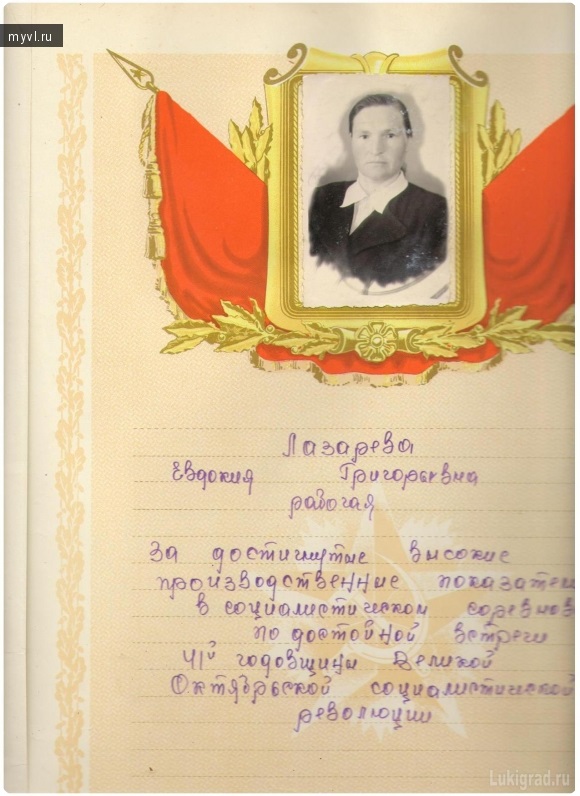 myvl.ru
Лазарева
Евдокия Григорьевна
рабочая
за достигнутые высокие
производственные показател
в социалистическом соревнов
по достойной встрече
41й годовщины Великой
Октябрьской социалистической
революции
Lukigrad.ru